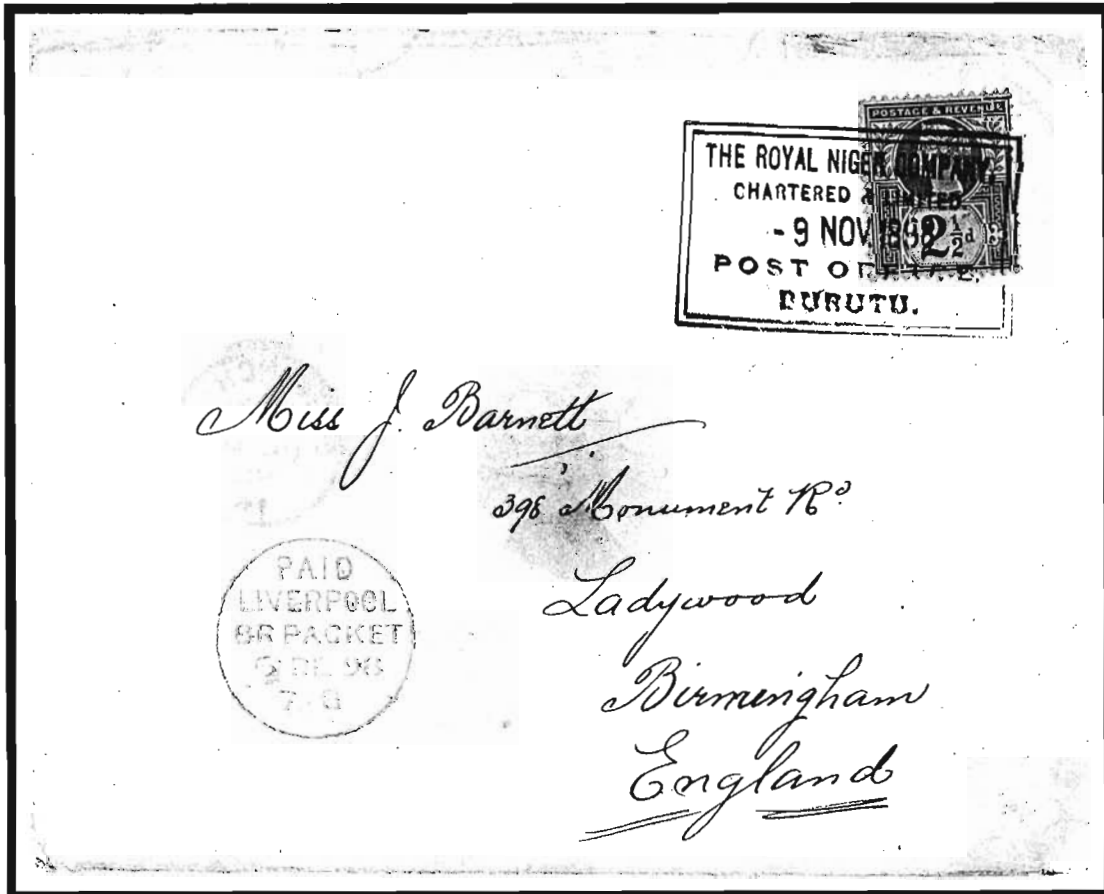 POSTAGE & REVENUE
THE ROYAL NIGER COMPANY,
CHARTERED & LIMITED
- 9 NOV 1898
2½d
POST OFFICE,
BURUTU.
Miss J. Barnett
398 Monument Rd
Ladywood
Birmingham
England
PAID
LIVERPOOL
BR PACKET
DE 98